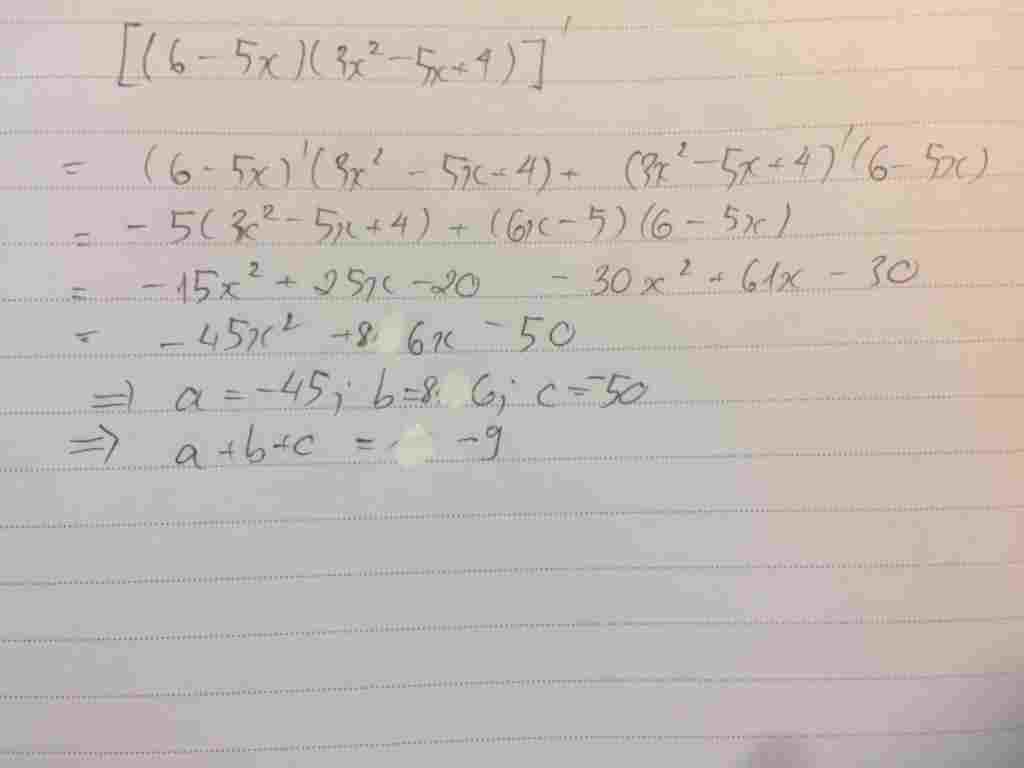 [(6-5x)(3x²-5x+4)]'
= (6-5x)'(3x²-5x+4)+ (3x²-5x+4)'(6-5x)
= -5(3x²-5x+4)+(6x-5)(6-5x)
= -15x²+25x-20 -30x²+61x-30
= -45x²+86x-50
⇒ a=-45; b=86; c=-50
⇒ a+b+c = -9